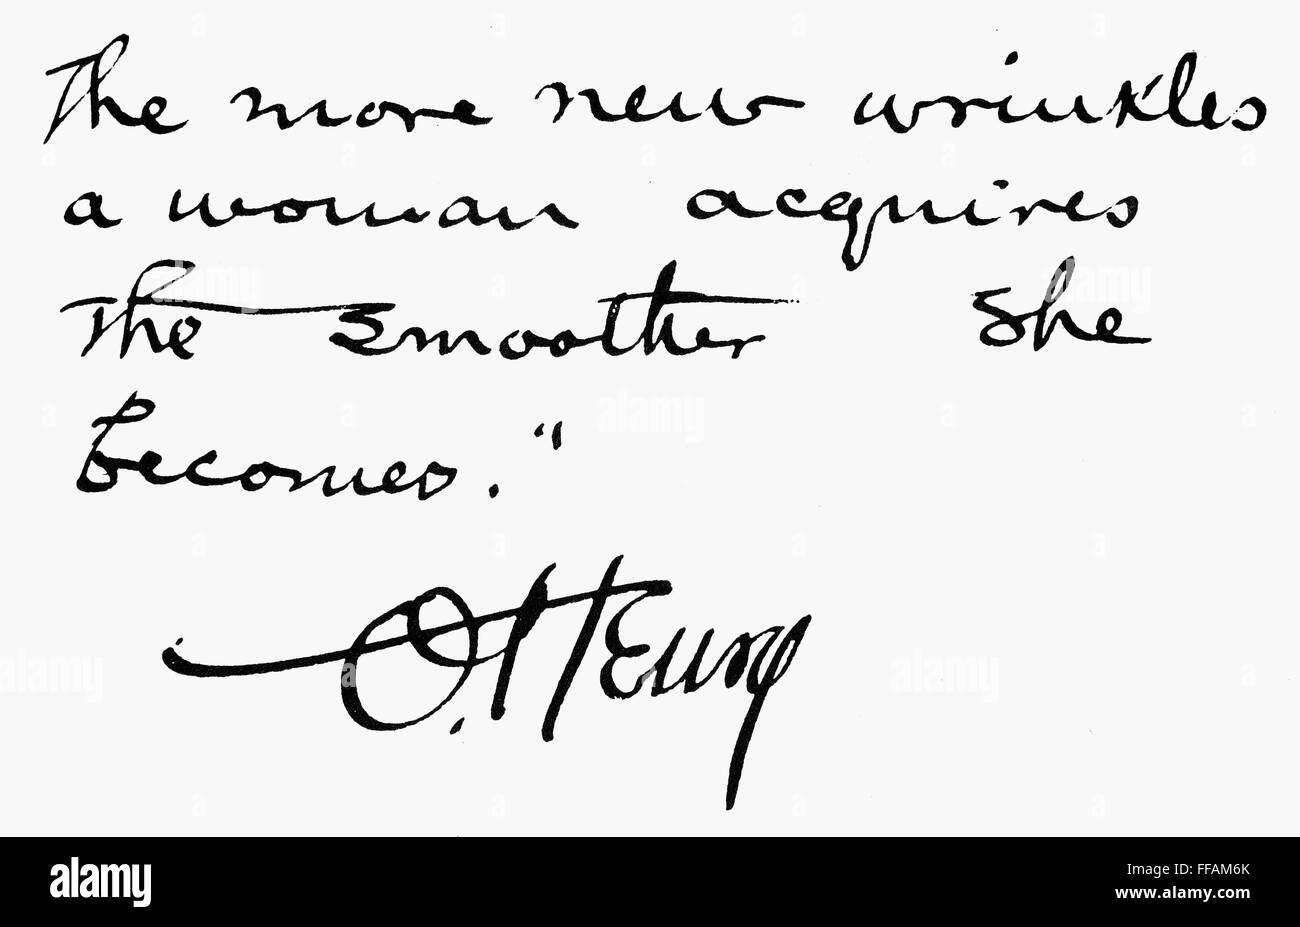 The more new wrinkles
a woman acquires
the smoother she
becomes."
O. Henry
alamy
Image ID: FFAM6K
www.alamy.com